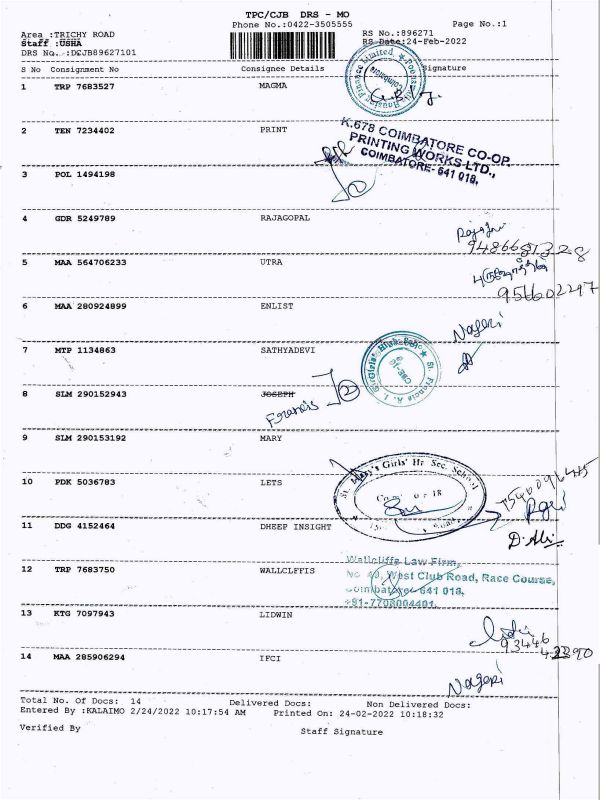 TPC/CJB DRS - MO
Phone No.:0422-3505555 Page No.:1
Area :TRICHY ROAD RS No.:896271
Staff :USHA RS Date:24-Feb-2022
DRS No. :DCJB89627101
S No Consignment No Consignee Details Signature
1 TRP 7683527 MAGMA
2 TEN 7234402 PRINT
K.678 COIMBATORE CO-OP.
PRINTING WORKS LTD.,
COIMBATORE- 641 018.
3 POL 1494198
4 GDR 5249789 RAJAGOPAL
5 MAA 564706233 UTRA
6 MAA 280924899 ENLIST
Nageri
7 MTP 1134863 SATHYADEVI
8 SLM 290152943 JOSEPH
Francis
9 SLM 290153192 MARY
St. Mary's Girls' Hr. Sec. School
10 PDK 5036783 LETS
11 DDG 4152464 DHEEP INSIGHT
Wallcliffs Law Firm,
12 TRP 7683750 WALLCLFFIS
No 40, West Club Road, Race Course,
Coimbatore- 641 018.
+91-7708004401.
13 KTG 7097943 LIDWIN
93446
42390
14 MAA 285906294 IFCI
Nageri
Total No. Of Docs: 14 Delivered Docs: Non Delivered Docs:
Entered By :KALAIMO 2/24/2022 10:17:54 AM Printed On: 24-02-2022 10:18:32
Verified By Staff Signature